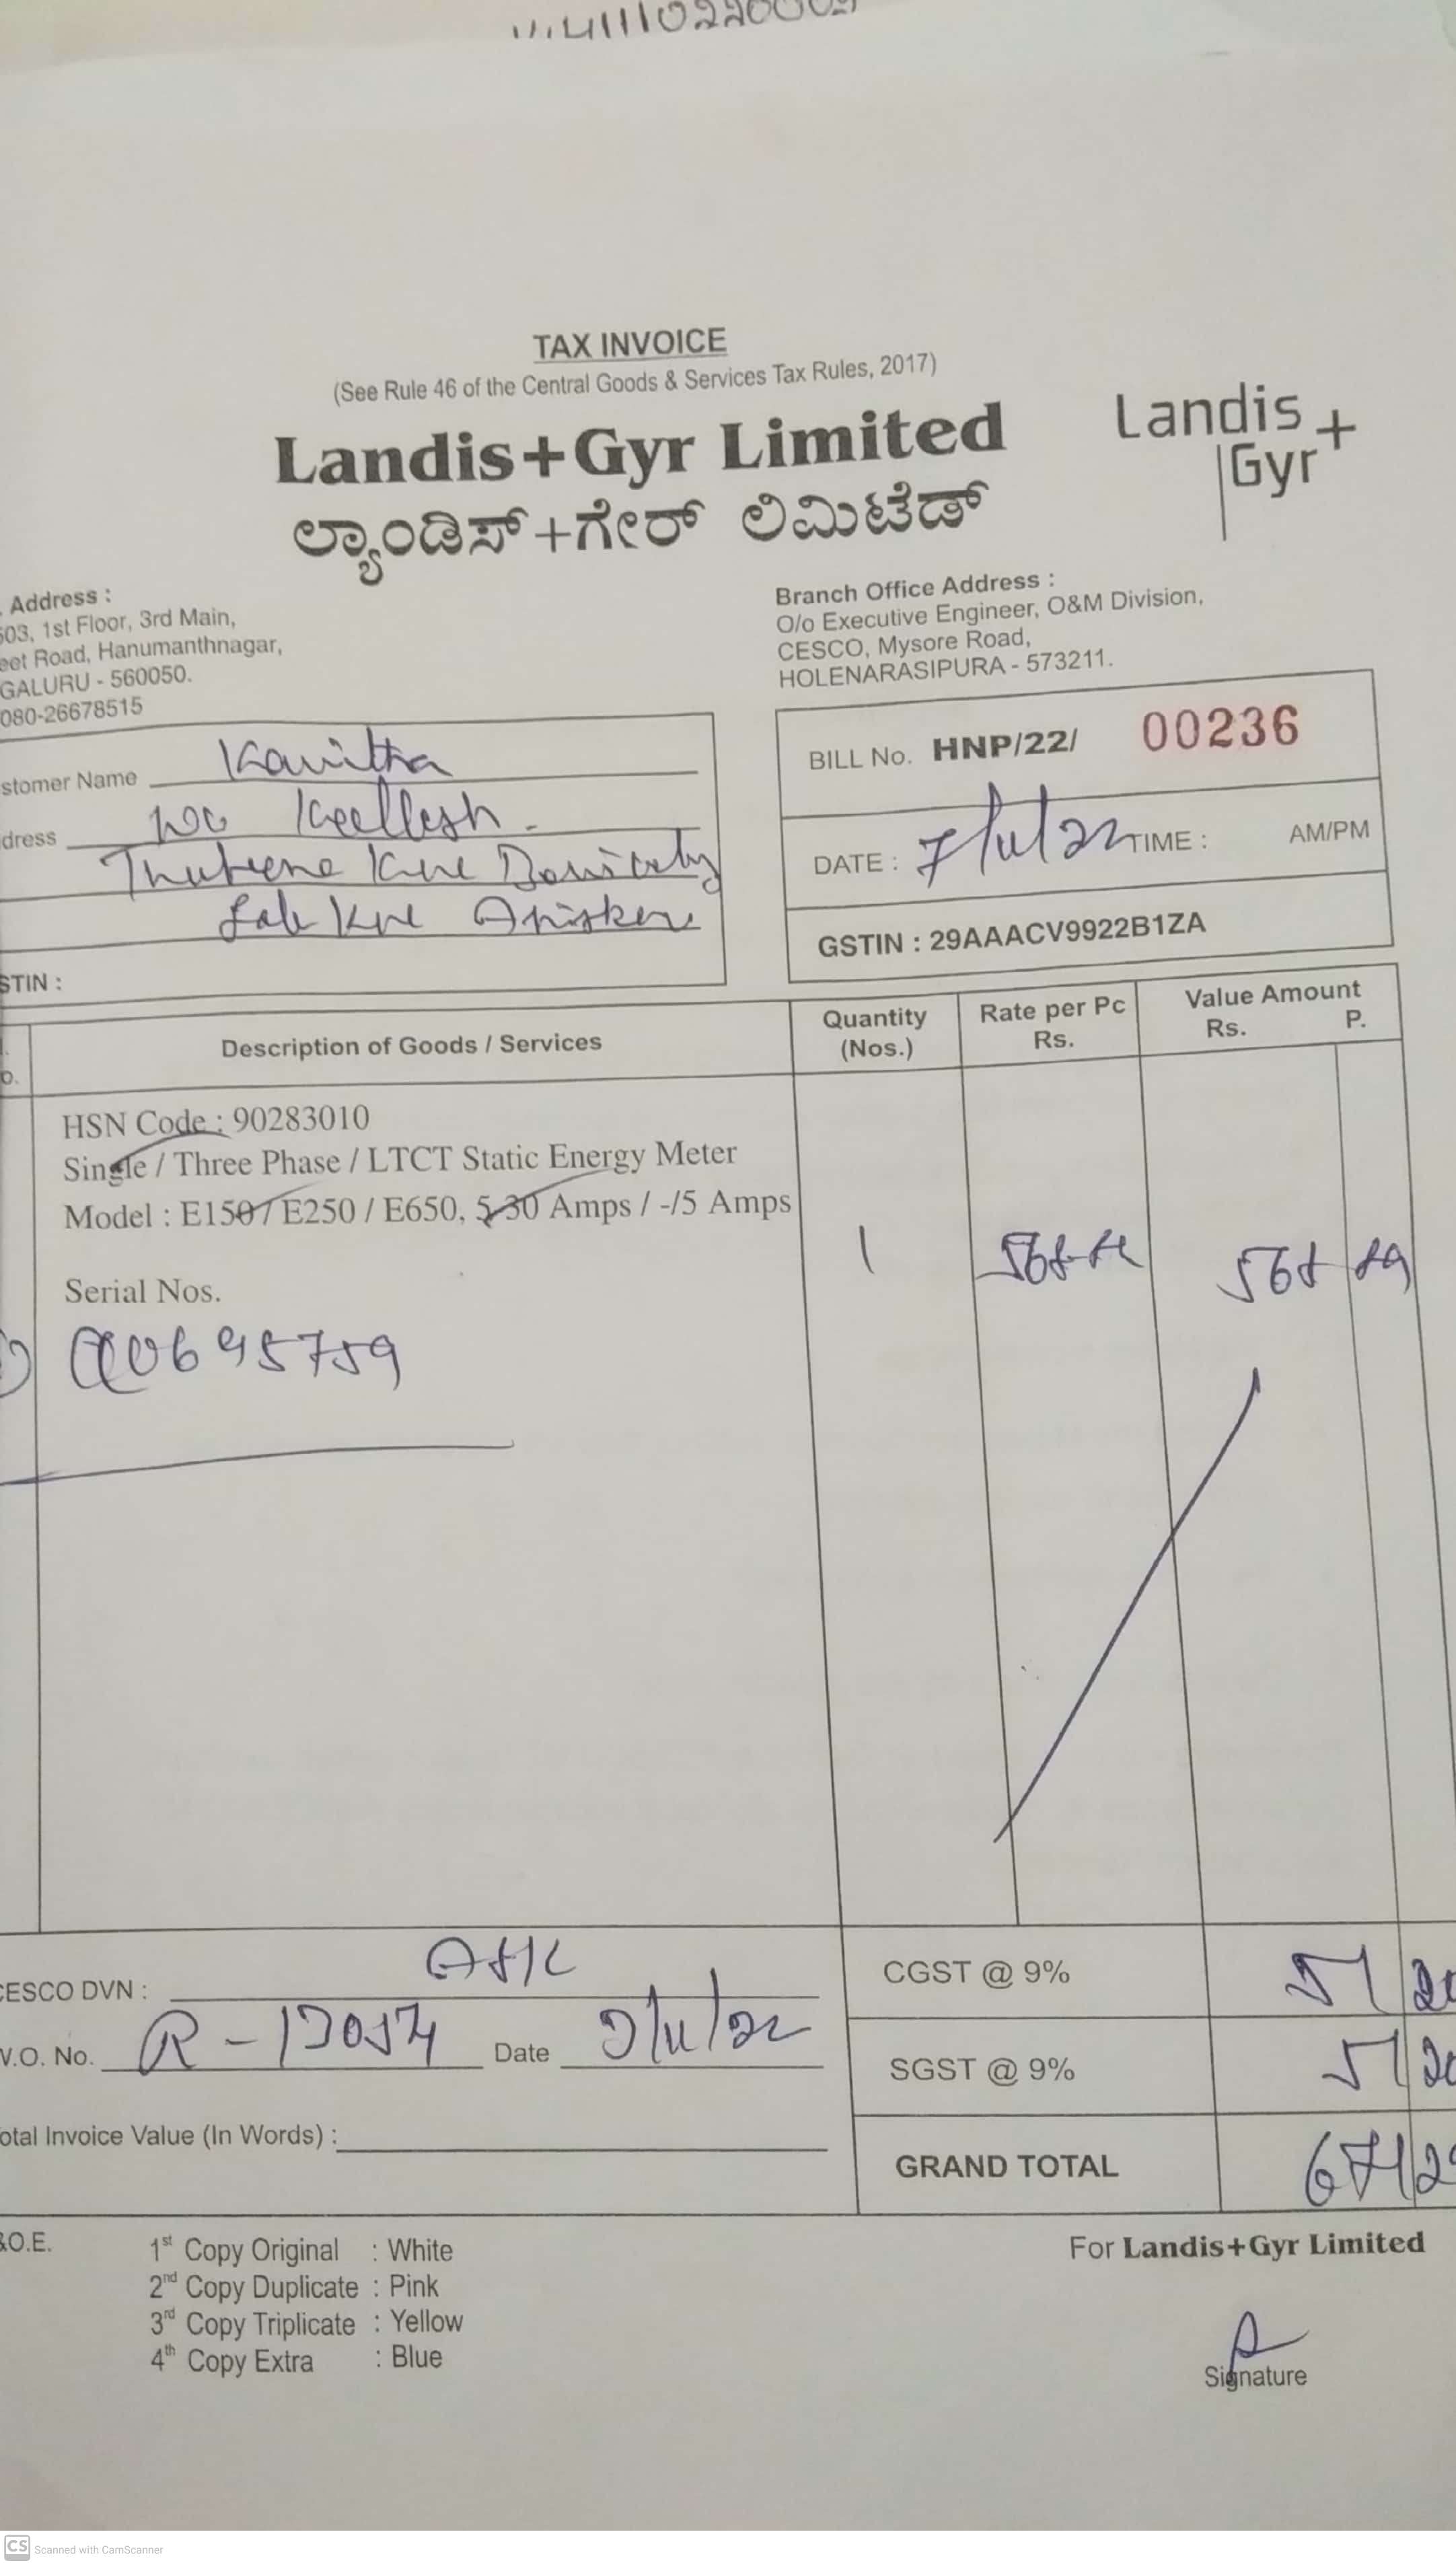 TAX INVOICE
(See Rule 46 of the Central Goods & Services Tax Rules, 2017)
Landis+Gyr Limited
ಲ್ಯಾಂಡಿಸ್+ಗೇರ್ ಲಿಮಿಟೆಡ್
Landis+
Gyr
Address :
503, 1st Floor, 3rd Main,
eet Road, Hanumanthnagar,
GALURU - 560050.
080-26678515
Branch Office Address :
O/o Executive Engineer, O&M Division,
CESCO, Mysore Road,
HOLENARASIPURA - 573211.
stomer Name Kavitha
dress
STIN :
BILL No. HNP/22/ 00236
DATE : 7/11/22 TIME : AM/PM
GSTIN : 29AAACV9922B1ZA
Description of Goods / Services
Quantity (Nos.)
Rate per Pc Rs.
Value Amount Rs. P.
HSN Code : 90283010
Single / Three Phase / LTCT Static Energy Meter
Model : E150 / E250 / E650, 5-30 Amps / -/5 Amps
1
Serial Nos.
CESCO DVN : ASK
W.O. No. Date
otal Invoice Value (In Words) :
CGST @ 9% 51
SGST @ 9% 51
GRAND TOTAL
&O.E.
1st Copy Original : White
2nd Copy Duplicate : Pink
3rd Copy Triplicate : Yellow
4th Copy Extra : Blue
For Landis+Gyr Limited
Signature
CS Scanned with CamScanner